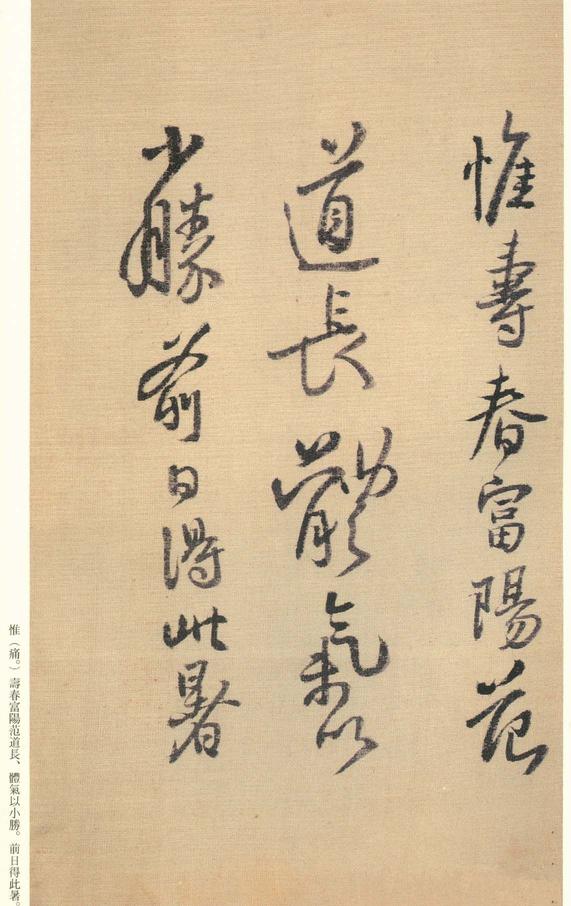 惟壽春富陽范
道長體氣以
少勝前日得此暑
惟（痛。）壽春富陽范道長、體氣以小勝。前日得此暑。